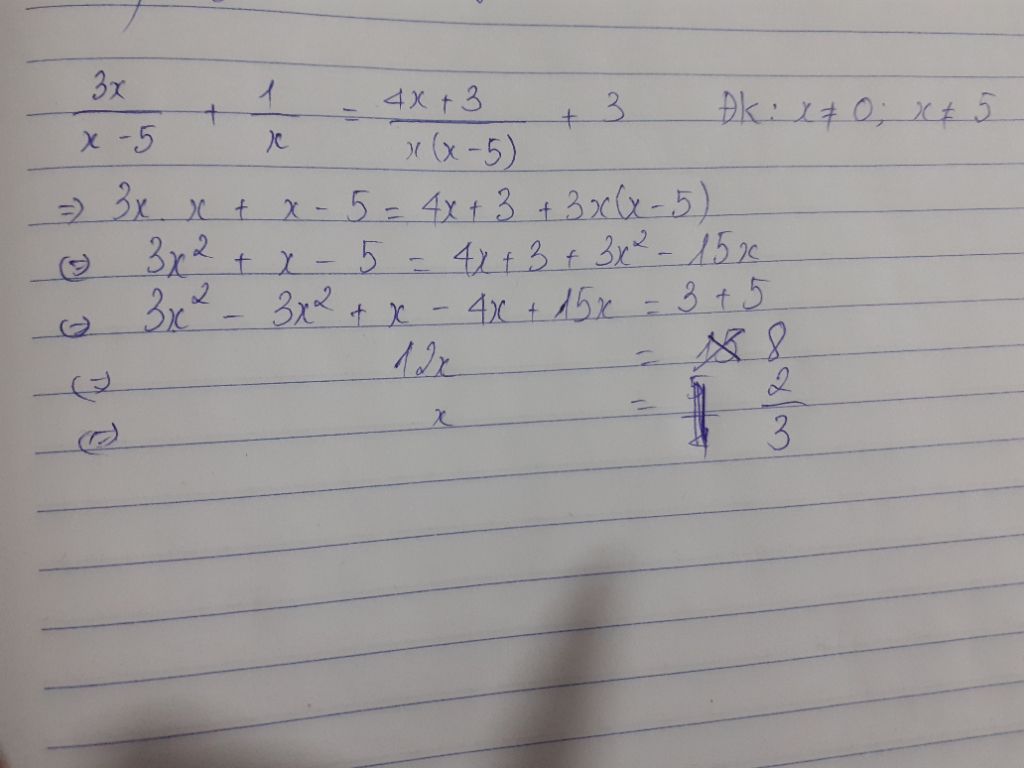 3x/(x - 5) + 1/x = (4x + 3)/(x(x - 5)) + 3 ĐK: x ≠ 0; x ≠ 5
=> 3x . x + x - 5 = 4x + 3 + 3x(x - 5)
<=> 3x² + x - 5 = 4x + 3 + 3x² - 15x
<=> 3x² - 3x² + x - 4x + 15x = 3 + 5
<=> 12x = 8
<=> x = 2/3